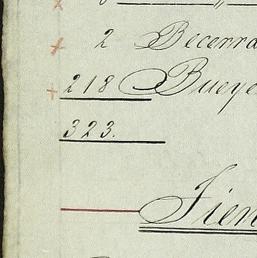 2 Becerra
218 Bueye
323.
Tien